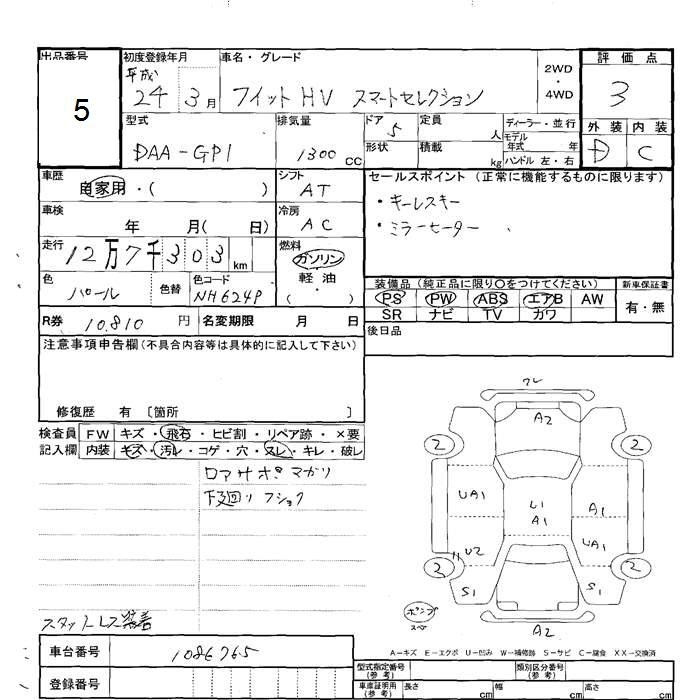 出品番号 初度登録年月 車名・グレード 評価点
5 平成 24 3月 フィットHV スマートセレクション 2WD・4WD 3
型式 排気量 ドア 5 定員 人 ディーラー・並行 外装 内装
DAA-GP1 1300cc 形状 積載 kg モデル年式 年 D C
ハンドル 左・右
車歴 自家用・( ) シフト AT セールスポイント (正常に機能するものに限ります)
車検 年 月( 日) 冷房 AC ・キーレスキー
・ミラーヒーター
走行 12万7千303km 燃料 ガソリン
軽油
・( )
色 パール 色替 色コード NH624P
装備品(純正品に限り○をつけてください) 新車保証書
PS PW ABS エアB AW 有・無
SR ナビ TV カワ
R券 10.810 円 名変期限 月 日 後日品
注意事項申告欄(不具合内容等は具体的に記入して下さい)
修復歴 有 〔箇所 〕
検査員 FW キズ・飛石・ヒビ割・リペア跡・×要
記入欄 内装 キズ・汚レ・コゲ・穴・スレ・キレ・破レ
ロアサポ マガリ
下廻り フショク
ワレ
A2
2 2
UA1 U1 A1 A1
UA1
U2
2 2
S1 S1
ポンプ
スペ
A2
スタットレス装着
A-キズ E-エクボ U-凹み W-補修跡 S-サビ C-腐食 XX-交換済
車台番号 1086765
登録番号
型式指定番号(参考) 類別区分番号(参考)
車庫証明用(参考) 長さ cm 幅 cm 高さ cm